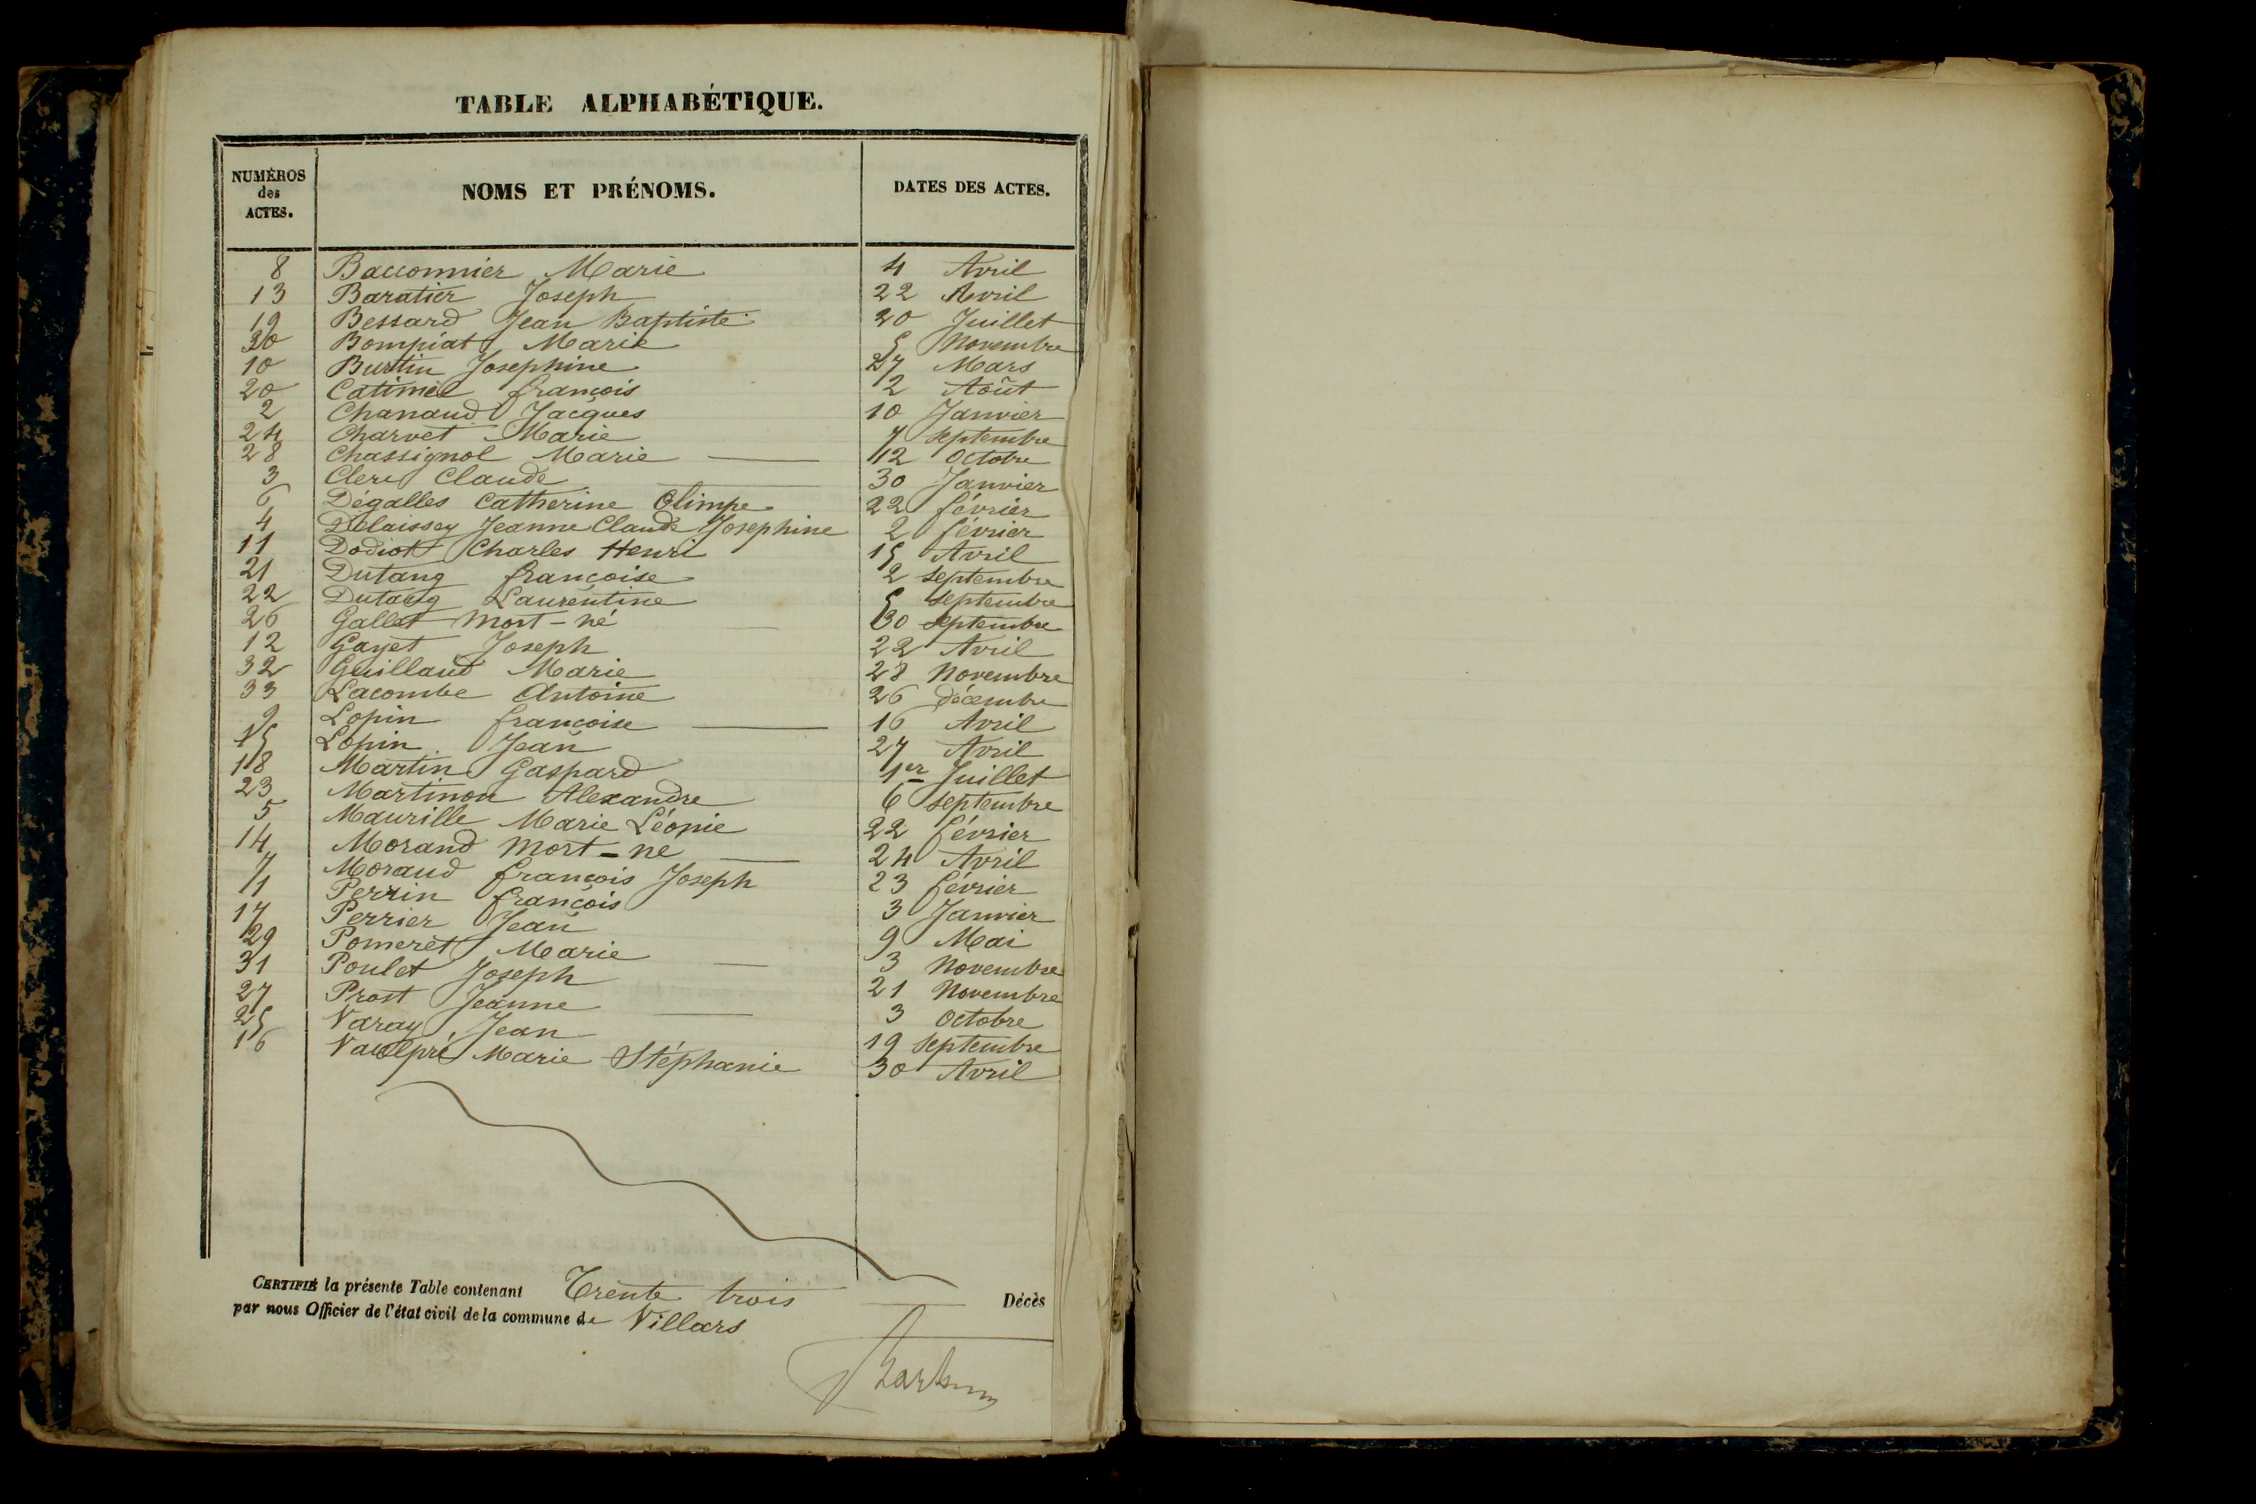 TABLE ALPHABÉTIQUE.
NUMÉROS des ACTES. NOMS ET PRÉNOMS. DATES DES ACTES.
8 Bacconnier Marie 4 Avril
13 Baratier Joseph 22 Avril
19 Bessard Jean Baptiste 20 Juillet
30 Bompiat Marie 5 Novembre
10 Burtin Josephine 27 Mars
20 Catimel françois 2 Août
2 Chanaud Jacques 10 Janvier
24 Charvet Marie 7 septembre
28 Chassignol Marie 12 Octobre
3 Clerc Claude 30 Janvier
6 Dégalles Catherine Olimpe 22 février
4 Délaissey Jeanne Claude Josephine 2 février
11 Dodiot Charles Henri 15 Avril
21 Dutang françoise 2 septembre
22 Dutang Laurentine 5 septembre
26 Gallet Mort-né 30 septembre
12 Gayet Joseph 22 Avril
32 Guillaud Marie 28 Novembre
33 Lacombe Antoine 26 décembre
9 Lopin françoise 16 Avril
15 Lopin Jean 27 Avril
18 Martin Gaspard 1er Juillet
23 Martinon Alexandre 6 septembre
5 Maurille Marie Léonie 22 février
14 Morand Mort-né 24 Avril
7 Moraud françois Joseph 23 février
1 Perrin françois 3 Janvier
17 Perrier Jean 9 Mai
29 Pomeret Marie 3 Novembre
31 Poulet Joseph 21 Novembre
27 Prost Jeanne 3 Octobre
25 Varay Jean 19 septembre
16 Vaulpré Marie Stéphanie 30 Avril
CERTIFIÉ la présente Table contenant Trente trois Décès
par nous Officier de l'état civil de la commune de Villars